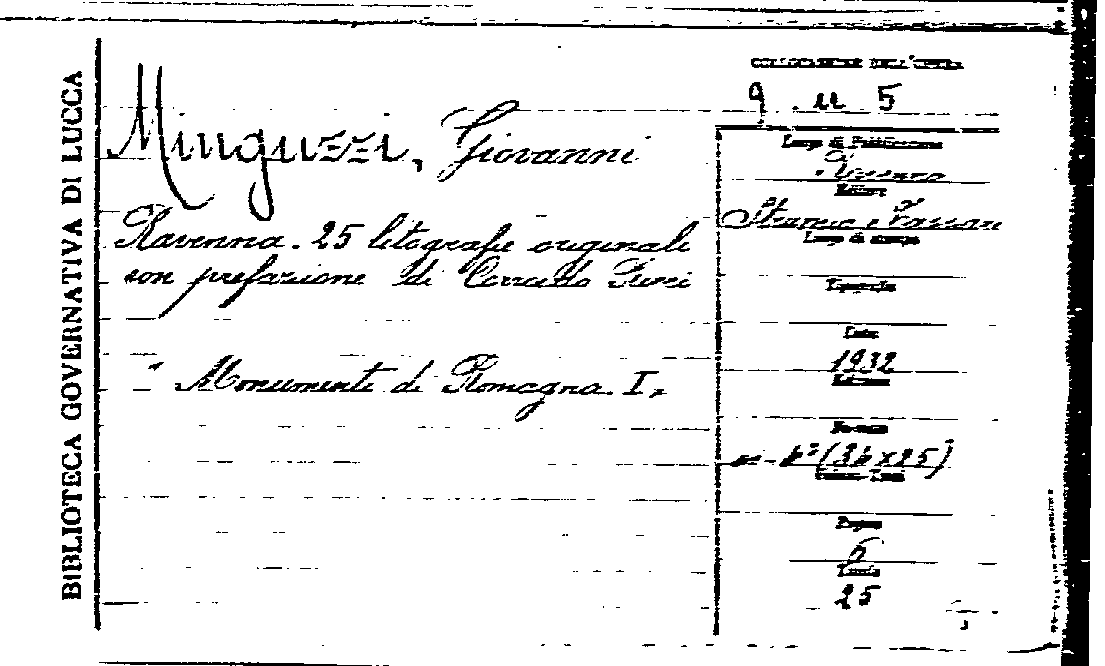 BIBLIOTECA GOVERNATIVA DI LUCCA
COLLOCAZIONE DELL'OPERA
9 . u 5
Minguzzi, Giovanni
Ravenna. 25 litografie originali
con prefazione di Corrado Ricci
" Monumenti di Romagna. I,
Luogo di Pubblicazione
Ravenna
Editore
Luogo di stampa
Tipografia
Data
1932
Edizione
Formato
(36x25)
Pagine
6
Tavole
25